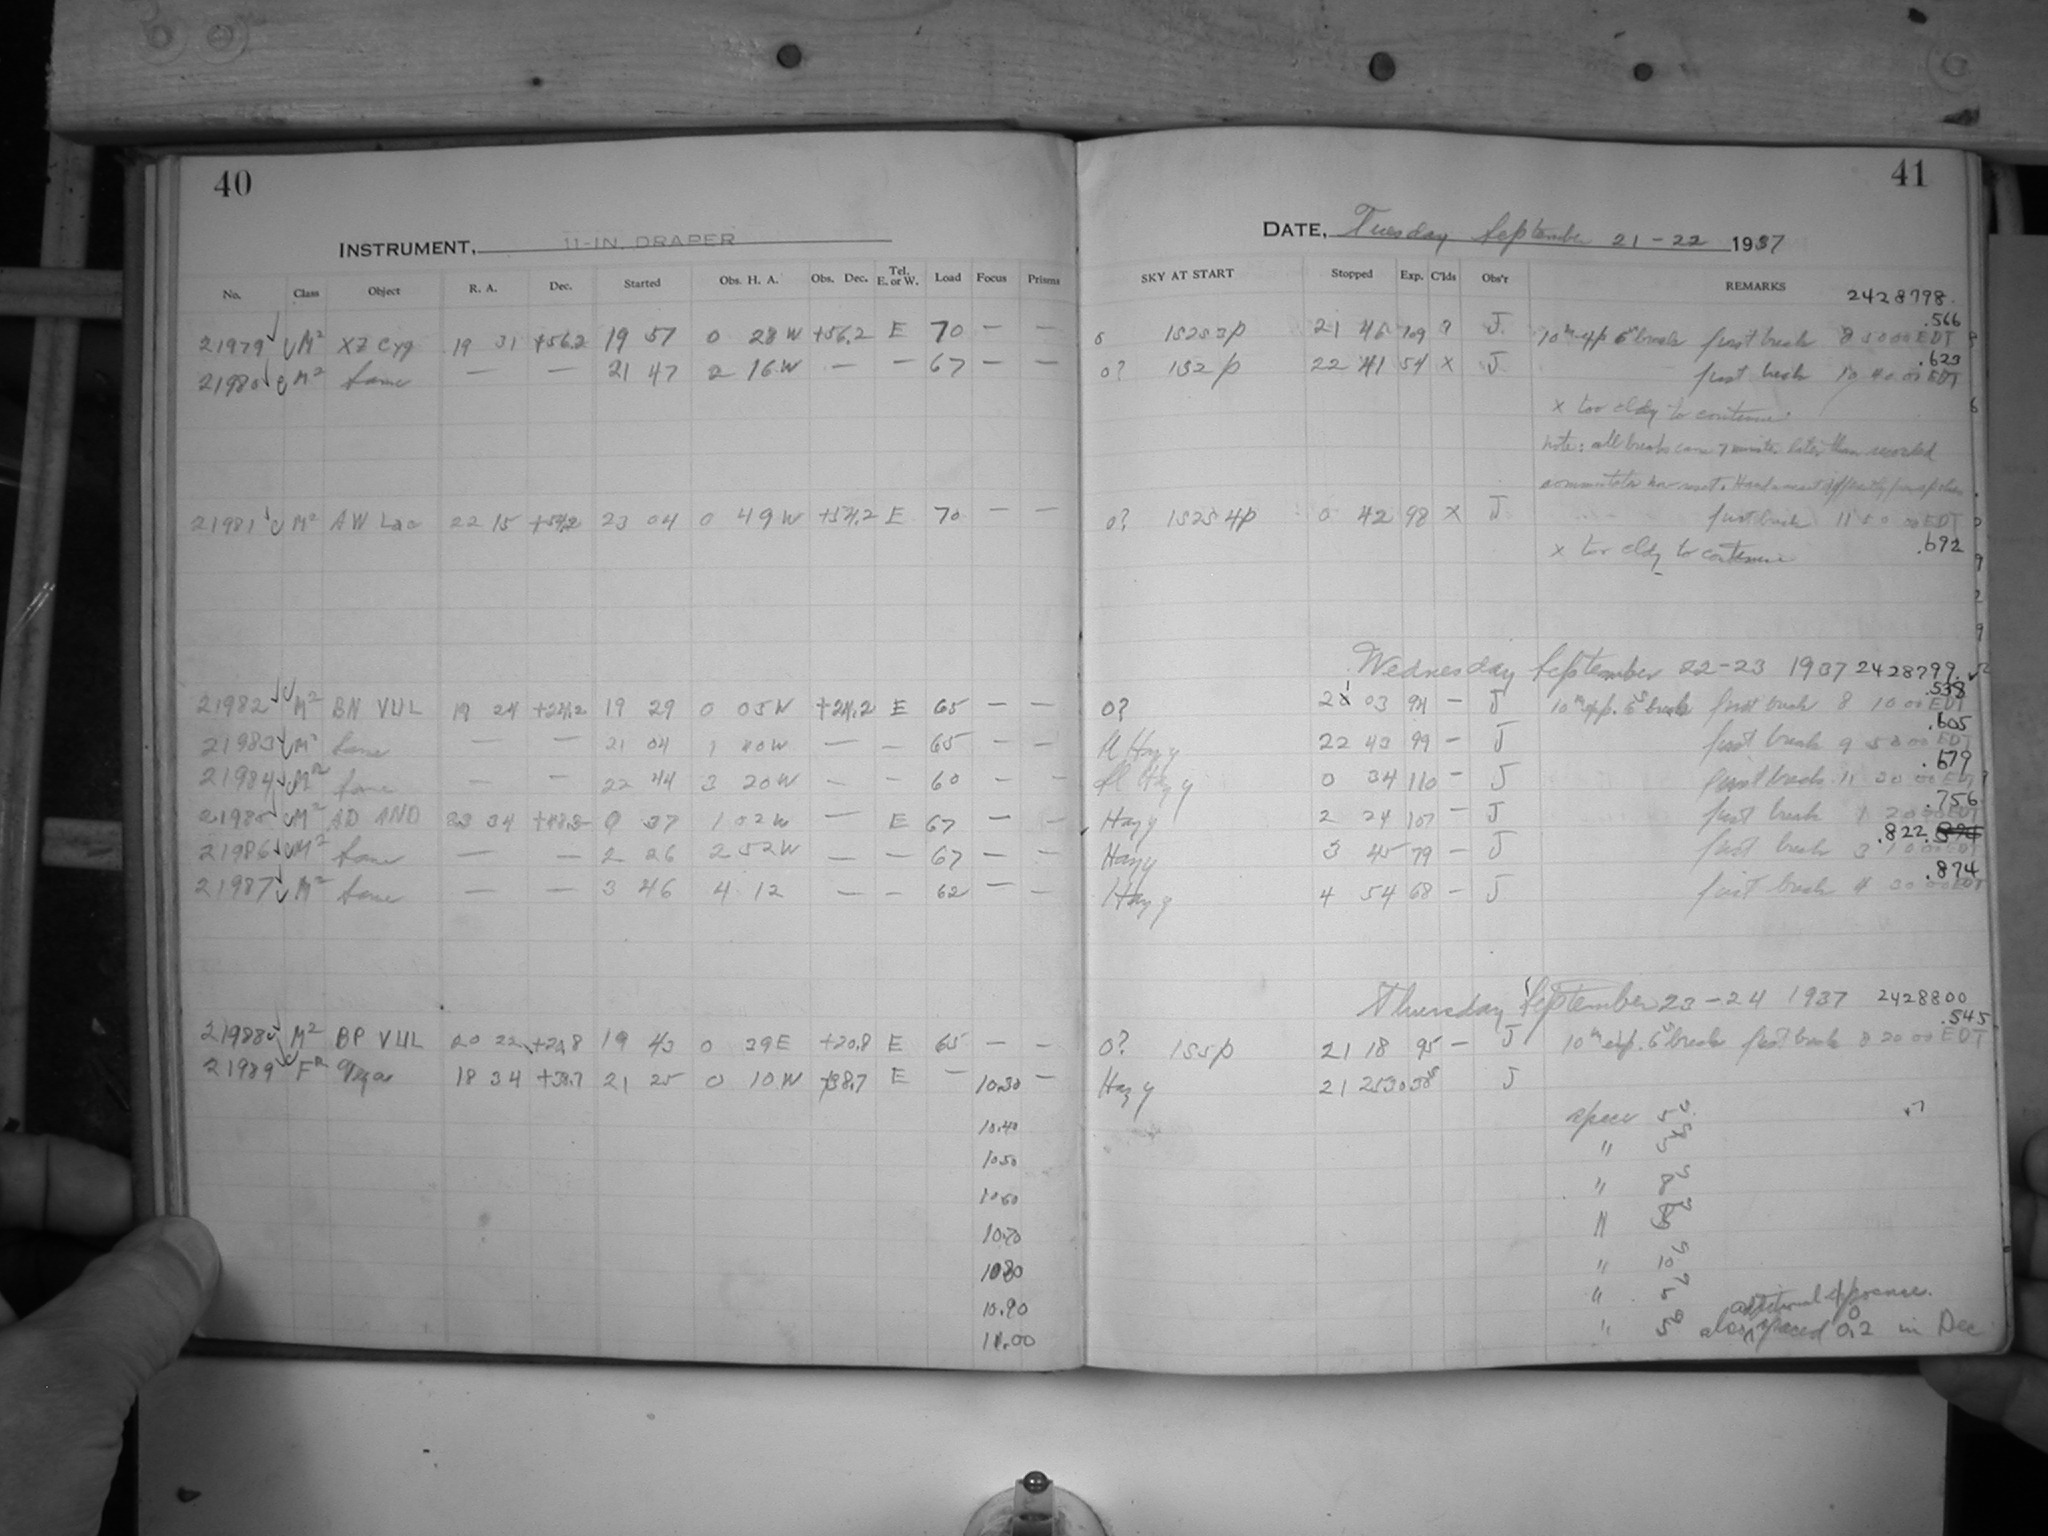 40
INSTRUMENT, 11-IN. DRAPER
No. Class Object R. A. Dec. Started Obs. H. A. Obs. Dec. Tel. E. or W. Load Focus Prisms
21979 M2 XZ Cyg 19 31 +56.2 19 57 0 28 W +56.2 E 70 — —
21980 M2 Same — — 21 47 2 16 W — — 67 — —
21981 M2 AW Lac 22 15 +54.2 23 04 0 49 W +54.2 E 70 — —
21982 M2 BN VUL 19 24 +24.2 19 29 0 05 W +24.2 E 65 — —
21983 M2 Same — — 21 04 1 40 W — — 65 — —
21984 M2 Same — — 22 44 3 20 W — — 60 — —
21985 M2 AD AND 23 34 +48.3 0 37 1 02 W — E 67 — —
21986 M2 Same — — 2 26 2 52 W — — 67 — —
21987 M2 Same — — 3 46 4 12 — — 62 — —
21988 M2 BP VUL 20 22 +20.8 19 43 0 39 E +20.8 E 65 — —
21989 FR Vega 18 34 +38.7 21 25 0 10 W +38.7 E — 10.30 —
10.40
10.50
10.60
10.70
10.80
10.90
11.00
41
DATE, Tuesday September 21-22 1937
SKY AT START Stopped Exp. C'lds Obs'r REMARKS
2428798.
.566
0 1S2S3p 21 46 109 ? J 10m exp 6s break first break 8 50 00 EDT
.623
0? 1S2p 22 41 54 X J first break 10 40 00 EDT
x too cldy to continue.
note: all breaks came 7 minutes later than recorded
commutator now reset.
0? 1S2S4p 0 42 98 X J first break 11 50 00 EDT
.692
x too cldy to continue
Wednesday September 22-23 1937 2428799.
.538
0? 21 03 94 — J 10m exp. 6s break first break 8 10 00 EDT
.605
Sl Hazy 22 43 99 — J first break 9 50 00 EDT
.679
Sl Hazy 0 34 110 — J first break 11 30 00 EDT
.756
Hazy 2 24 107 — J first break 1 20 00 EDT
.822
Hazy 3 45 79 — J first break 3 10 00 EDT
.874
Hazy 4 54 68 — J first break 4 30 00 EDT
Thursday September 23-24 1937 2428800
.545
0? 1S5p 21 18 95 — J 10m exp. 6s break first break 8 20 00 EDT
Hazy 21 25 30 J
spec 5s
" 5s
" 8s
"
" 10s
" 5s additional exposure
" 5s also spaced 0.2 in Dec